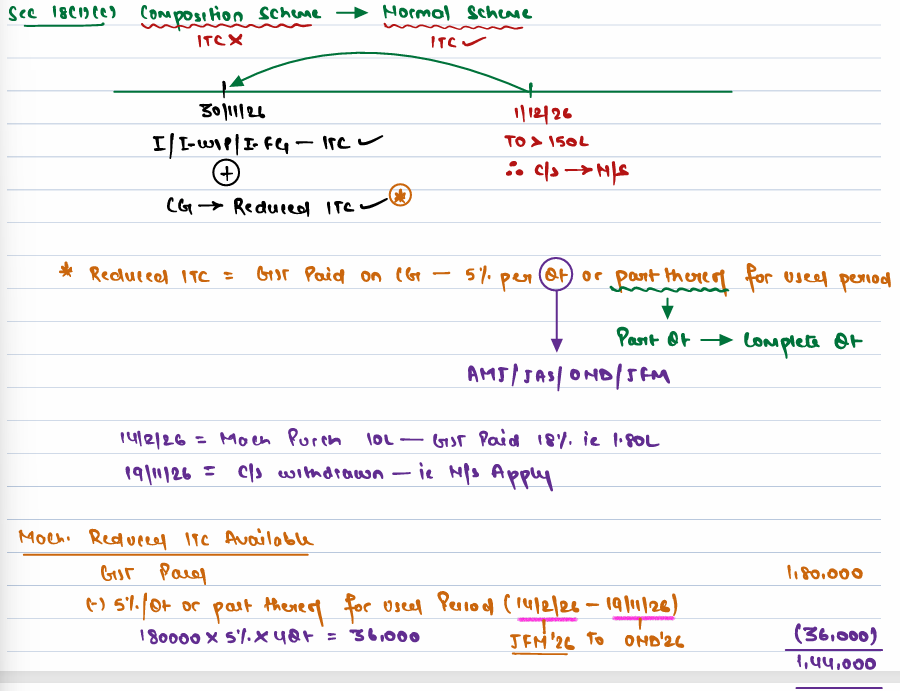 Sec 18(1)(c) Composition Scheme → Normal Scheme
ITC × ITC ✓
30/11/26 1/12/26
I/I-WIP/I-FG — ITC ✓ TO > 150L
+ ∴ C/S → N/S
CG → Reduced ITC ✓ *
* Reduced ITC = GST Paid on CG — 5% per Qt or part thereof for used period
Part Qt → Complete Qt
AMJ/JAS/OND/JFM
14/2/26 = Mach Purch 10L — GST Paid 18% ie 1.80L
19/11/26 = C/S withdrawn — ie N/S Apply
Mach. Reduced ITC Available
GST Paid 1,80,000
(-) 5%/Qt or part thereof for used Period (14/2/26 – 19/11/26)
180000 × 5% × 4Qt = 36,000 JFM'26 To OND'26 (36,000)
1,44,000